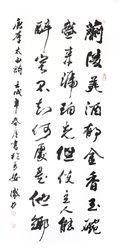 蘭陵美酒郁金香玉碗
盛来琥珀光但使主人能
醉客不知何處是他鄉
唐李太白詩 戌年春月書於